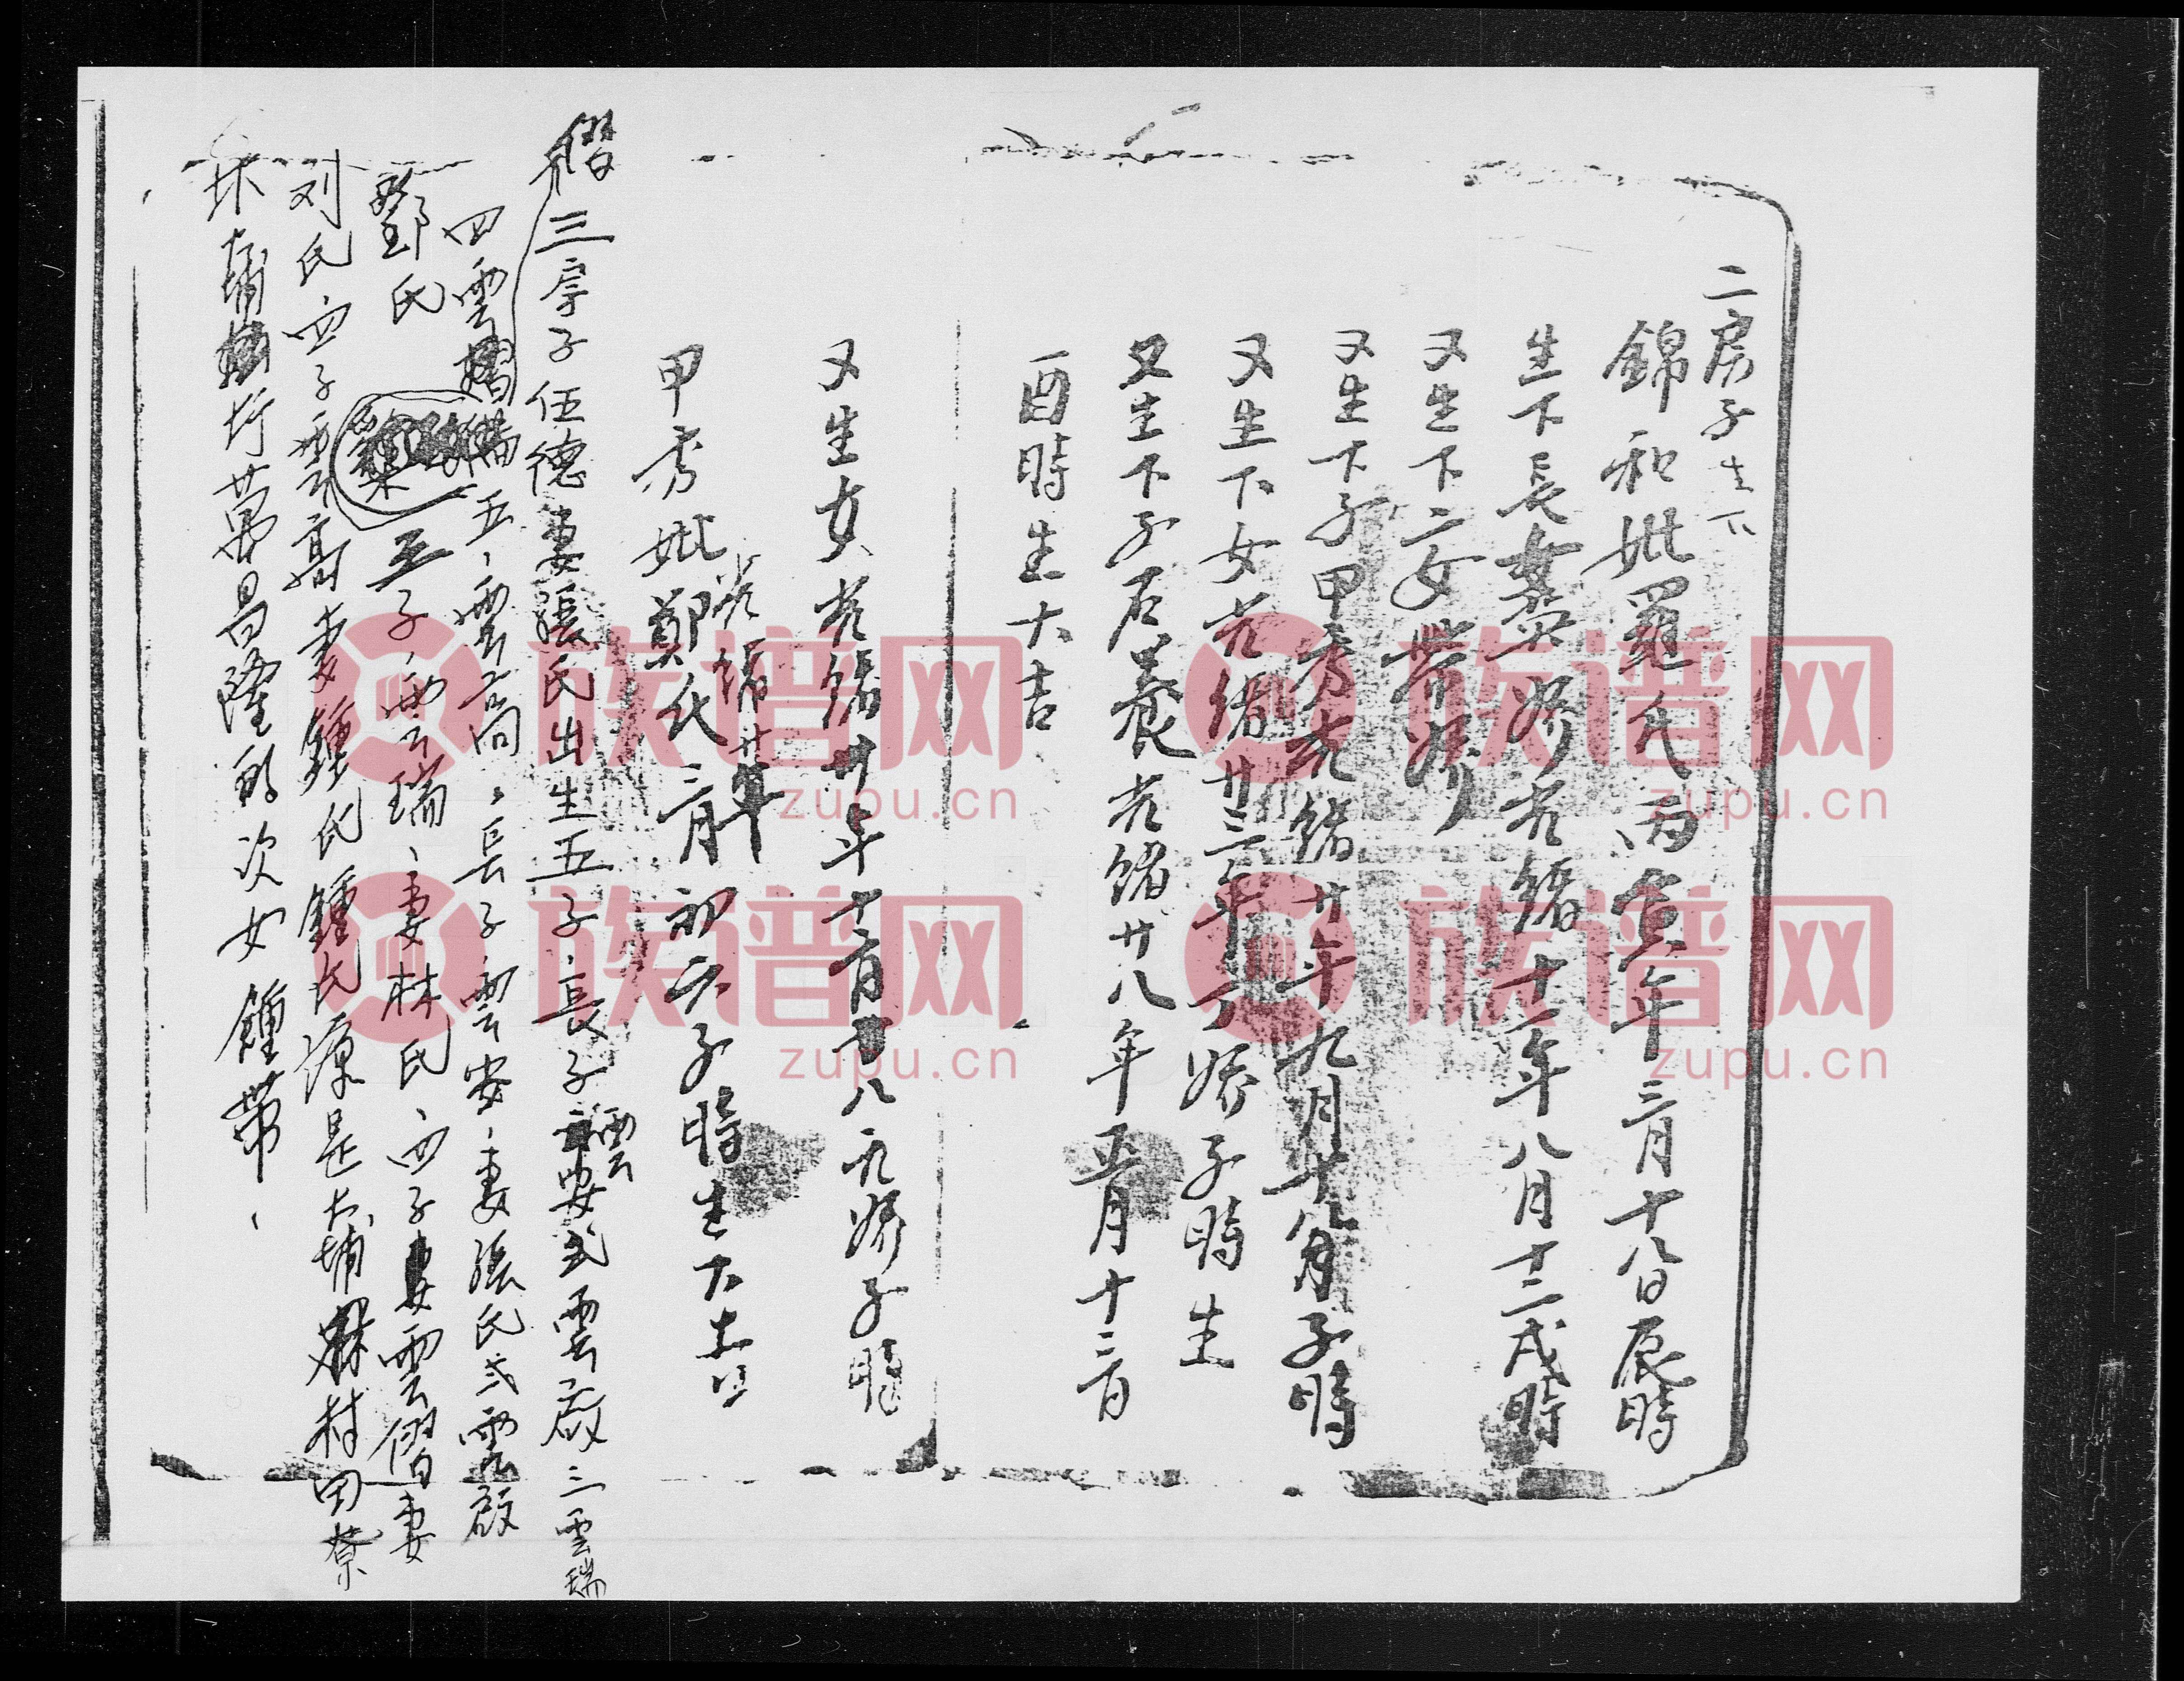 二房子生下
錦和妣羅氏丙寅年三月十八日辰時
生下長女嬌光緒十一年八月十二戌時
又生下二女帶嬌
又生下子甲秀光緒廿年九月十八月子時
又生下女光緒廿三年嬌子時生
又生下子居養光緒廿八年正月十二百
酉時生大吉
又生女光緒卅年十月廿八嬌子時
光緒廿年
甲秀妣鄭氏二月初六子時生大吉
三房子伍德妻張氏出生五子、長子雲安弍雲啟三雲瑞
四雲五、雲高、長子雲安、妻張氏弍雲啟
鄧氏三子、雲瑞、妻林氏、四子雲妻
刘氏五子雲高妻鍾氏鍾氏源是大埔村田寮
坏埔圩萬昌隆的次女鍾帶、
族谱网
zupu.cn
族谱网
zupu.cn
族谱网
zupu.cn
族谱网
zupu.cn